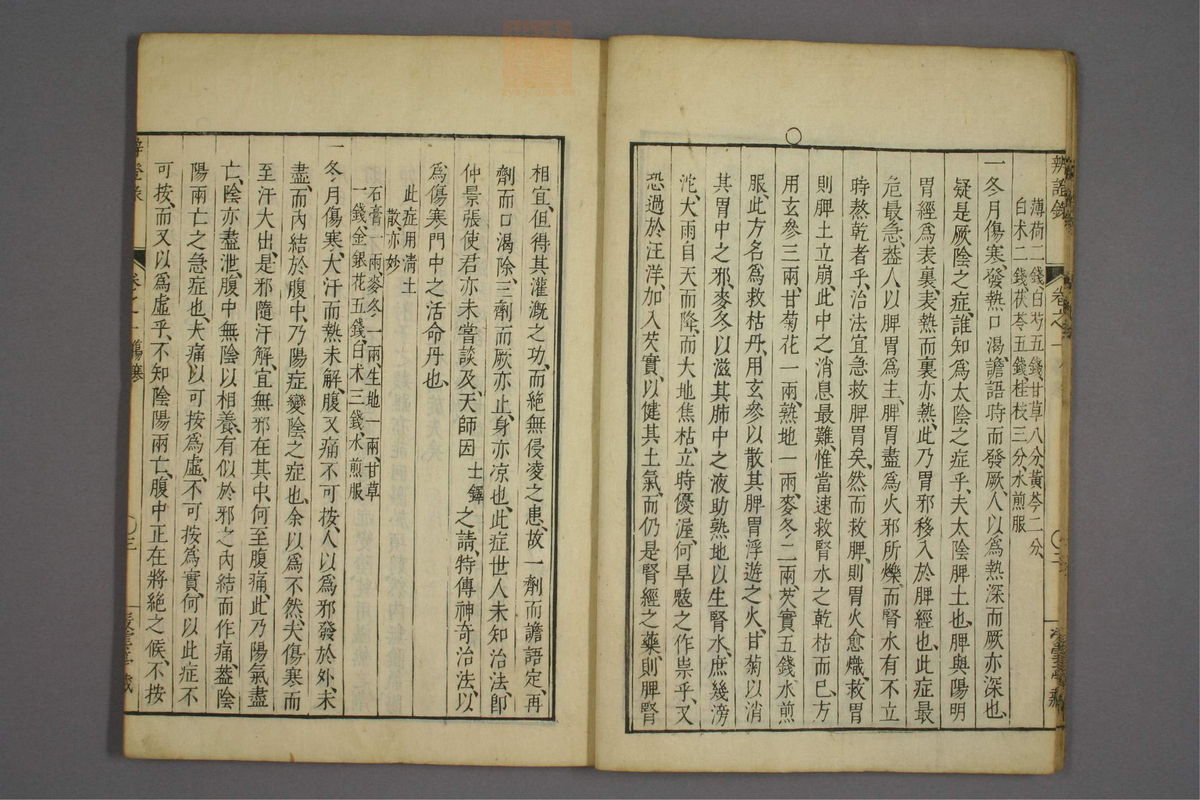 辨證錄
卷之一
薄荷二錢白芍五錢甘草八分黃芩二分
白朮二錢茯苓五錢桂枝三分水煎服
一冬月傷寒發熱口渴譫語時而發厥人以爲熱深而厥亦深也
疑是厥陰之症誰知爲太陰之症乎夫太陰脾土也脾與陽明
胃經爲表裏表熱而裏亦熱此乃胃邪移入於脾經也此症最
危最急葢人以脾胃爲主脾胃盡爲火邪所爍而腎水有不立
時熬乾者乎治法宜急救脾胃矣然而救脾則胃火愈熾救胃
則脾土立崩此中之消息最難惟當速救腎水之乾枯而已方
用玄參三兩甘菊花一兩熟地一兩麥冬二兩芡實五錢水煎
服此方名爲救枯丹用玄參以散其脾胃浮遊之火甘菊以消
其胃中之邪麥冬以滋其肺中之液助熟地以生腎水庶幾滂
沱大雨自天而降而大地焦枯立時優渥何旱魃之作祟乎又
恐過於汪洋加入芡實以健其土氣而仍是腎經之藥則脾腎
相宜但得其灌漑之功而絕無侵凌之患故一劑而譫語定再
劑而口渴除三劑而厥亦止身亦凉也此症世人未知治法卽
仲景張使君亦未嘗談及天師因士鐸之請特傳神奇治法以
爲傷寒門中之活命丹也
此症用淸土
散亦妙
石膏一兩麥冬一兩生地一兩甘草
一錢金銀花五錢白朮三錢水煎服
一冬月傷寒大汗而熱未解腹又痛不可按人以爲邪發於外未
盡而內結於腹中乃陽症變陰之症也余以爲不然夫傷寒而
至汗大出是邪隨汗解宜無邪在其中何至腹痛此乃陽氣盡
亡陰亦盡泄腹中無陰以相養有似於邪之內結而作痛葢陰
陽兩亡之急症也夫痛以可按爲虛不可按爲實何以此症不
可按而又以爲虛乎不知陰陽兩亡腹中正在將絕之候不按
辨證錄
卷之一傷寒
三